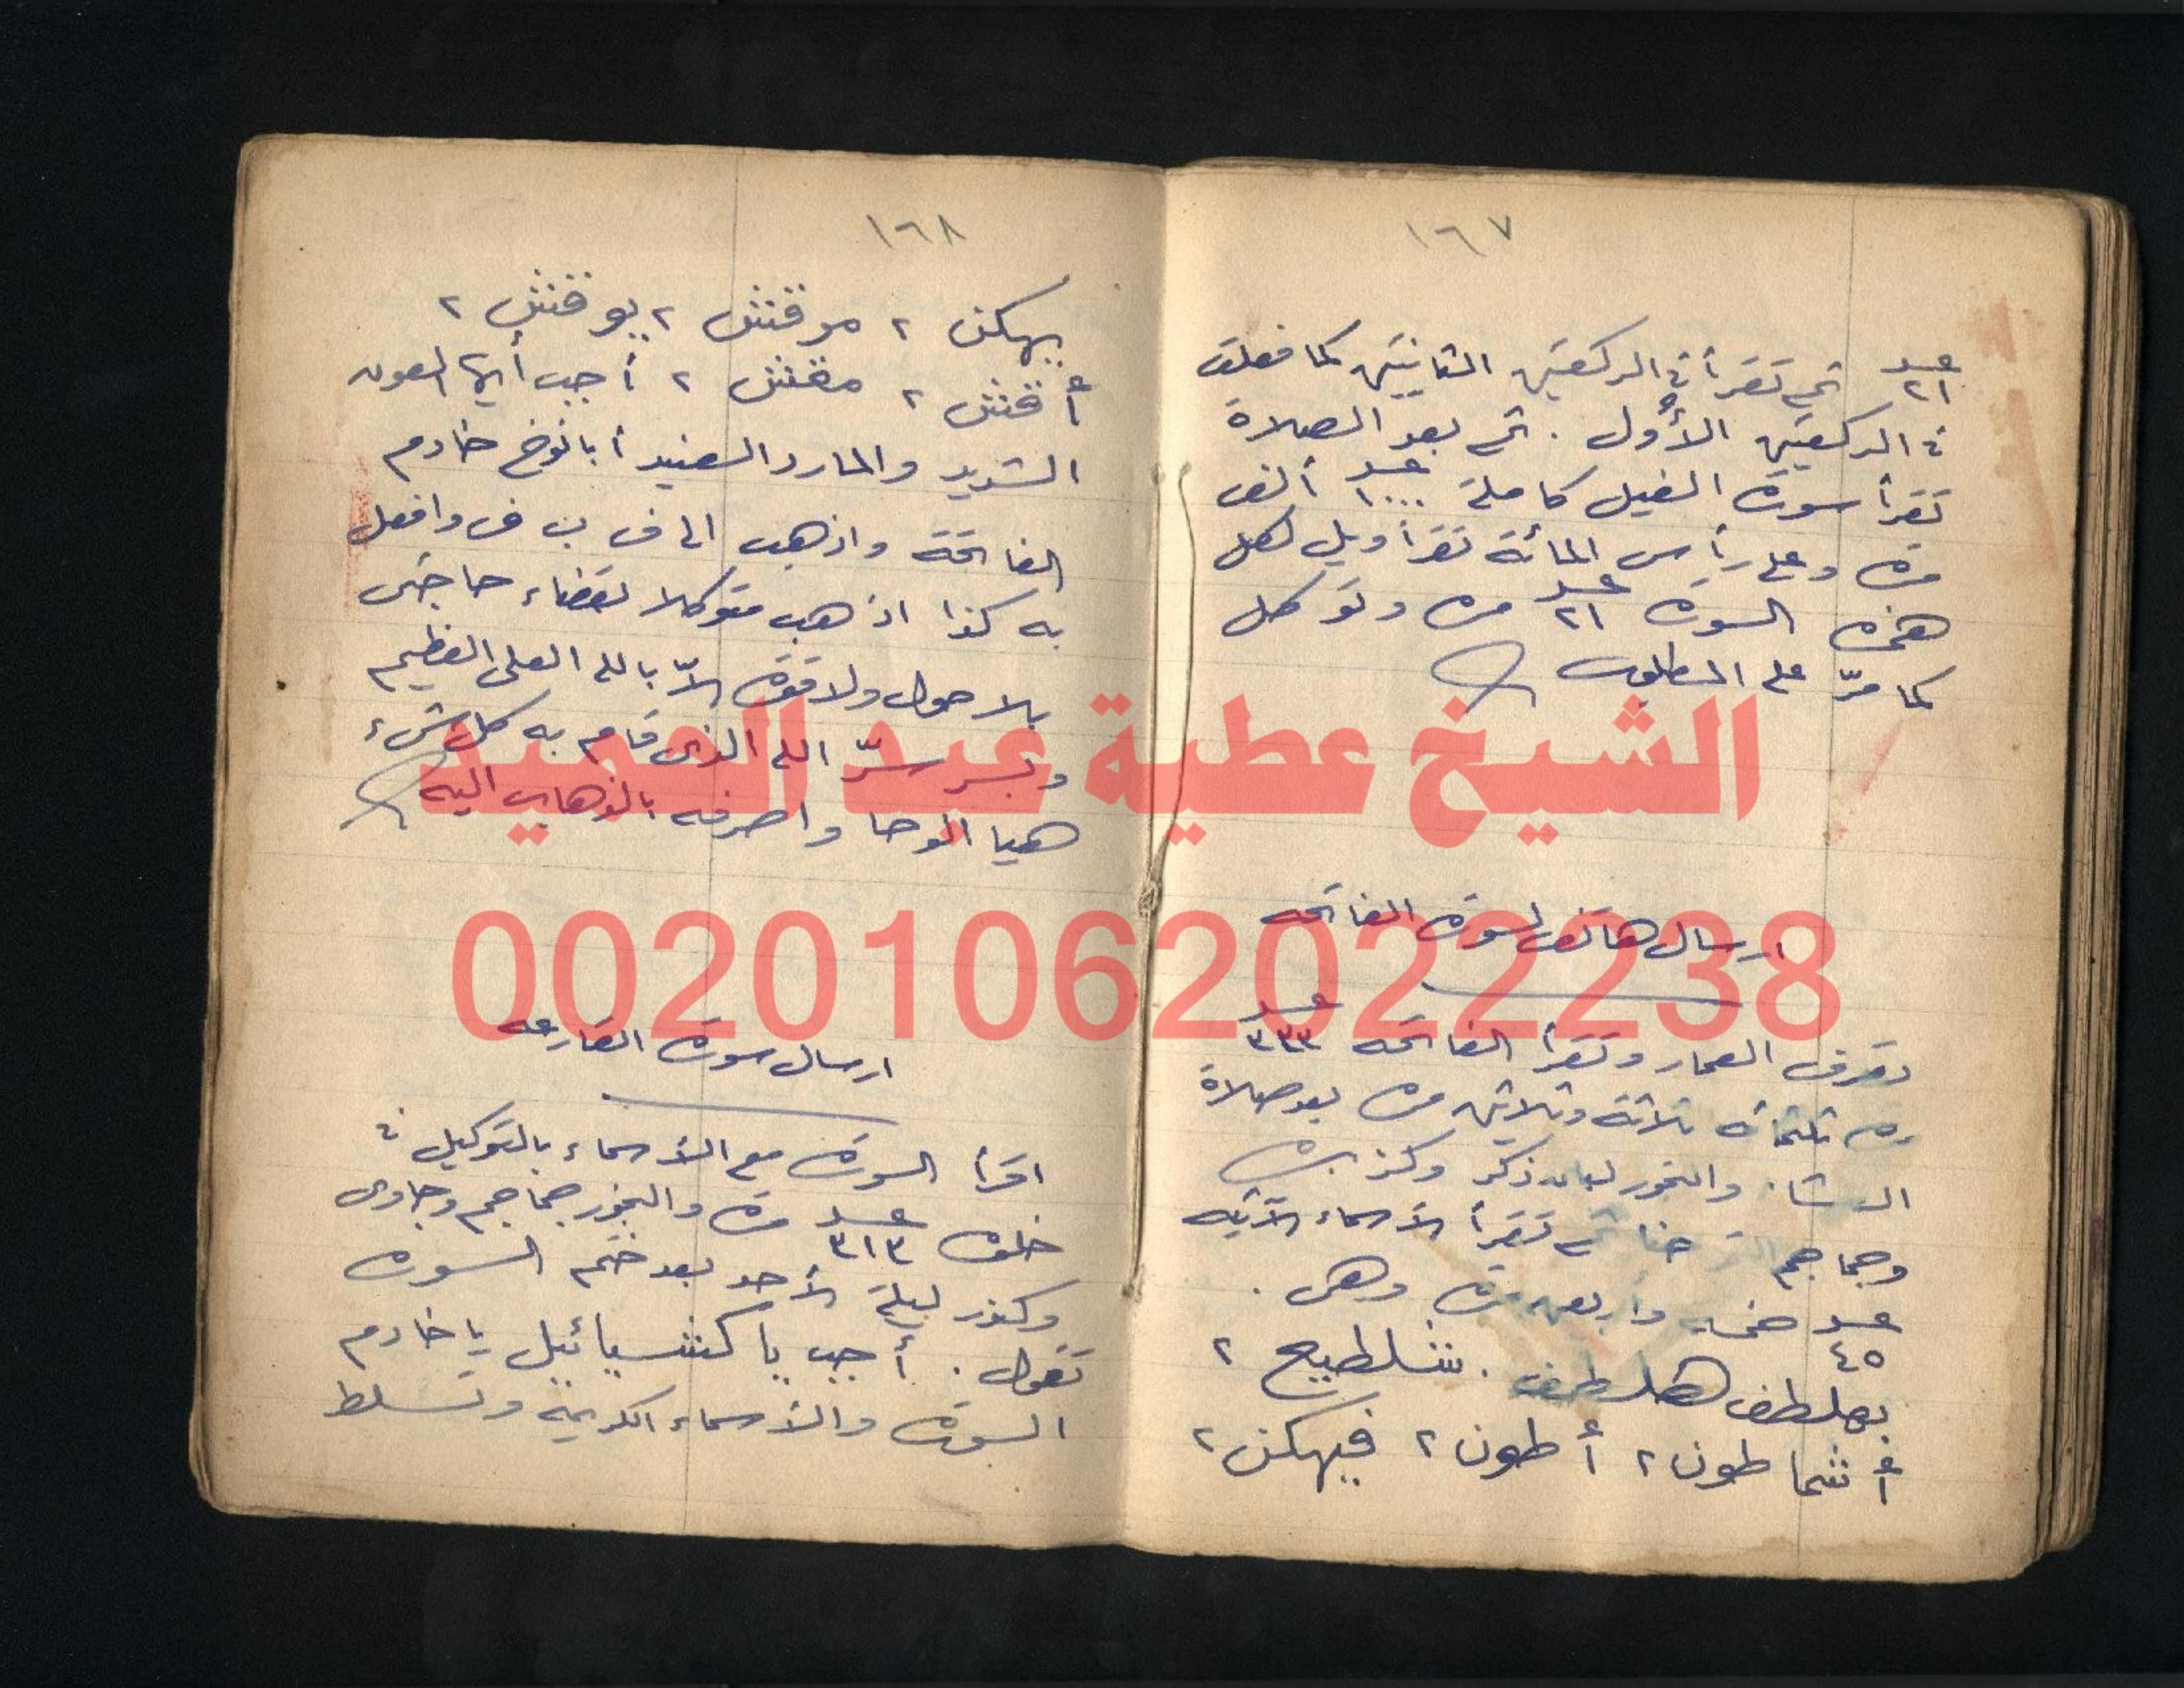 ١٦٧
عدد ٢١ ثم تقرأ في الركعتين الثانيتين كما فعلت
في الركعتين الأول . ثم بعد الصلاة
تقرأ سورة الفيل كاملة عدد ١٠٠٠ ألف
مرة وعلى رأس المائة تقرأ ويل لكل
همزه السورة عدد ٢١ مرة وتوكل
كما مرّ على المطلوب
ارسال هاتف لسورة الفاتحه
تصرف العمار وتقرأ الفاتحه عدد ٣٣٣
ثلثمائه ثلاثة وثلاثين مرة بعد صلاة
العشاء والبخور لبان ذكر وكزبره
وجماجم ثم تقرأ الأسماء الآتيه
عدد ٤٥ خمسه وأربعين مرة وهى .
بهلطف هلطف . شلطيع ٢
أشماطون ٢ أطون ٢ فيهكن ٢
١٦٨
يهكن ٢ مرقنش ٢ يوقنش ٢
أقنش ٢ مقنش ٢ أجب أيها العون
الشديد والمارد العنيد أبانوخ خادم
الفاتحة واذهب الى ف ب ف وافعل
به كذا اذهب متوكلا بقضاء حاجتى
بلا حول ولا قوة إلاّ بالله العلى العظيم
وبسر سرّ الله الذى قام به كل شىء
هيا الوحا واصرفه بالذهاب اليه
ارسال سورة القارعه
اقرأ السورة مع الأسماء بالتوكيل فى
خلوة عدد ٣١٣ مرة والبخور جماجم وجاوى
وكندر ليلة الأحد بعد ختم السورة
تقول . أجب يا كنشيائيل يا خادم
السورة والأسماء الكريمه وتسلط
الشيخ عطية عبد الحميد
00201062022238